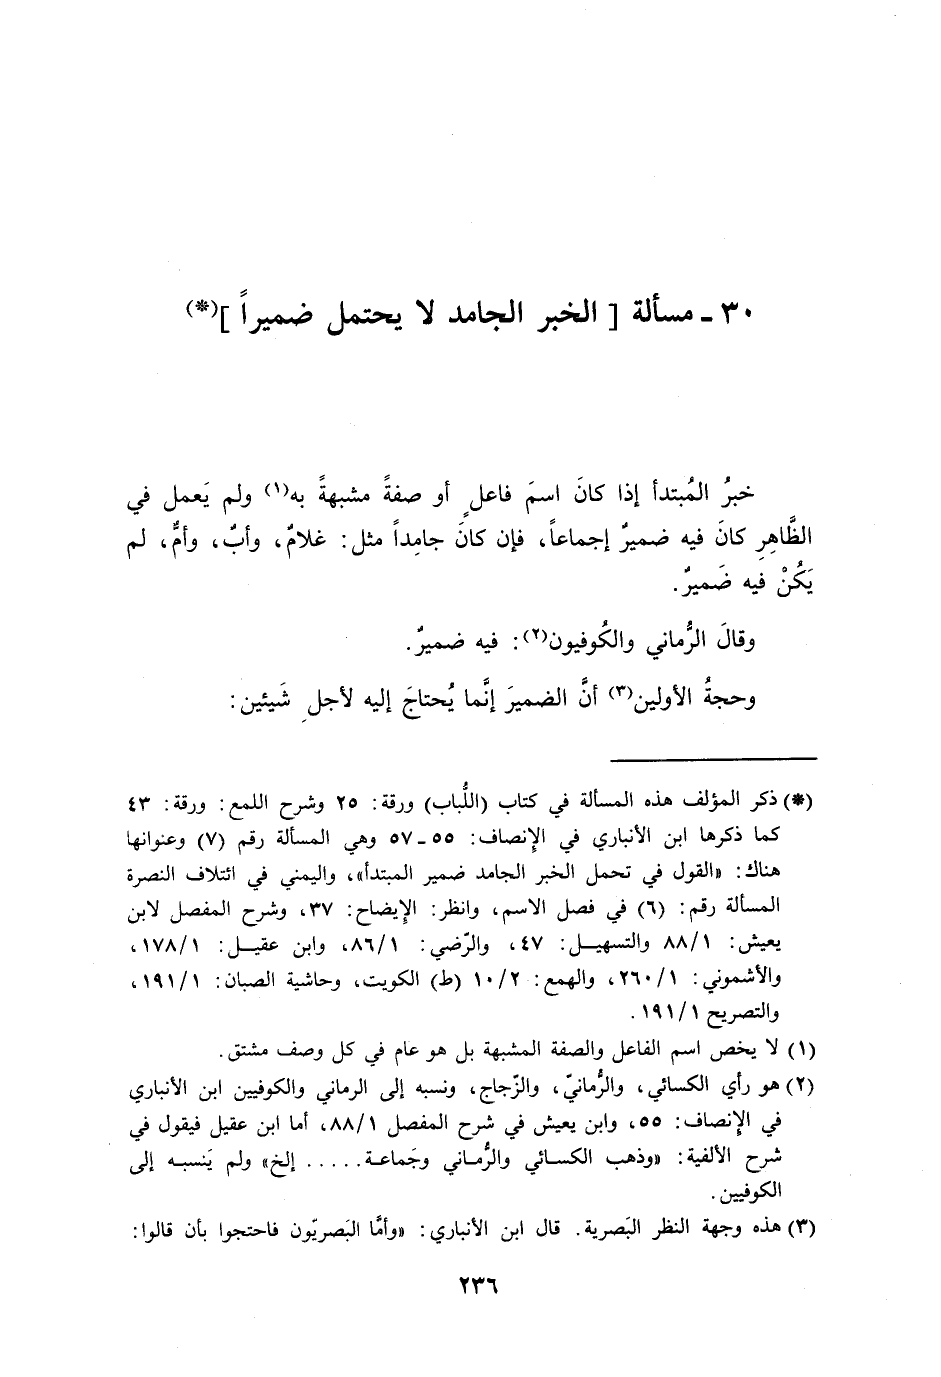 ٣٠ ـ مسألة [ الخبر الجامد لا يحتمل ضميراً ](*)
خبرُ المُبتدأ إذا كانَ اسمَ فاعلٍ أو صفةً مشبهةً به(١) ولم يَعمل في
الظَّاهِرِ كانَ فيه ضميرٌ إجماعاً، فإن كانَ جامِداً مثل: غلامٌ، وأبٌ، وأمٌّ، لم
يَكُنْ فيه ضَميرٌ.
وقالَ الرُّماني والكُوفيون(٢): فيه ضميرٌ.
وحجةُ الأولين(٣) أنَّ الضميرَ إنَّما يُحتاجَ إليه لأجلِ شَيئين:
(*) ذكر المؤلف هذه المسألة في كتاب (اللُّباب) ورقة: ٢٥ وشرح اللمع: ورقة: ٤٣
كما ذكرها ابن الأنباري في الإنصاف: ٥٥ ـ ٥٧ وهي المسألة رقم (٧) وعنوانها
هناك: «القول في تحمل الخبر الجامد ضمير المبتدأ»، واليمني في ائتلاف النصرة
المسألة رقم: (٦) في فصل الاسم، وانظر: الإيضاح: ٣٧، وشرح المفصل لابن
يعيش: ٨٨/١ والتسهيـل: ٤٧، والرّضي: ٨٦/١، وابن عقيـل: ١٧٨/١،
والأشموني: ٢٦٠/١، والهمع: ١٠/٢ (ط) الكويت، وحاشية الصبان: ١٩١/١،
والتصريح ١٩١/١.
(١) لا يخص اسم الفاعل والصفة المشبهة بل هو عام في كل وصف مشتق.
(٢) هو رأي الكسائي، والرُّمانيّ، والزّجاج، ونسبه إلى الرماني والكوفيين ابن الأنباري
في الإنصاف: ٥٥، وابن يعيش في شرح المفصل ٨٨/١، أما ابن عقيل فيقول في
شرح الألفية: «وذهب الكسـائي والرُّمـاني وجَماعـة..... إلخ» ولم يَنسبـه إلى
الكوفيين.
(٣) هذه وجهة النظر البَصرية. قال ابن الأنباري: «وأمَّا البَصريّون فاحتجوا بأن قالوا:
٢٣٦